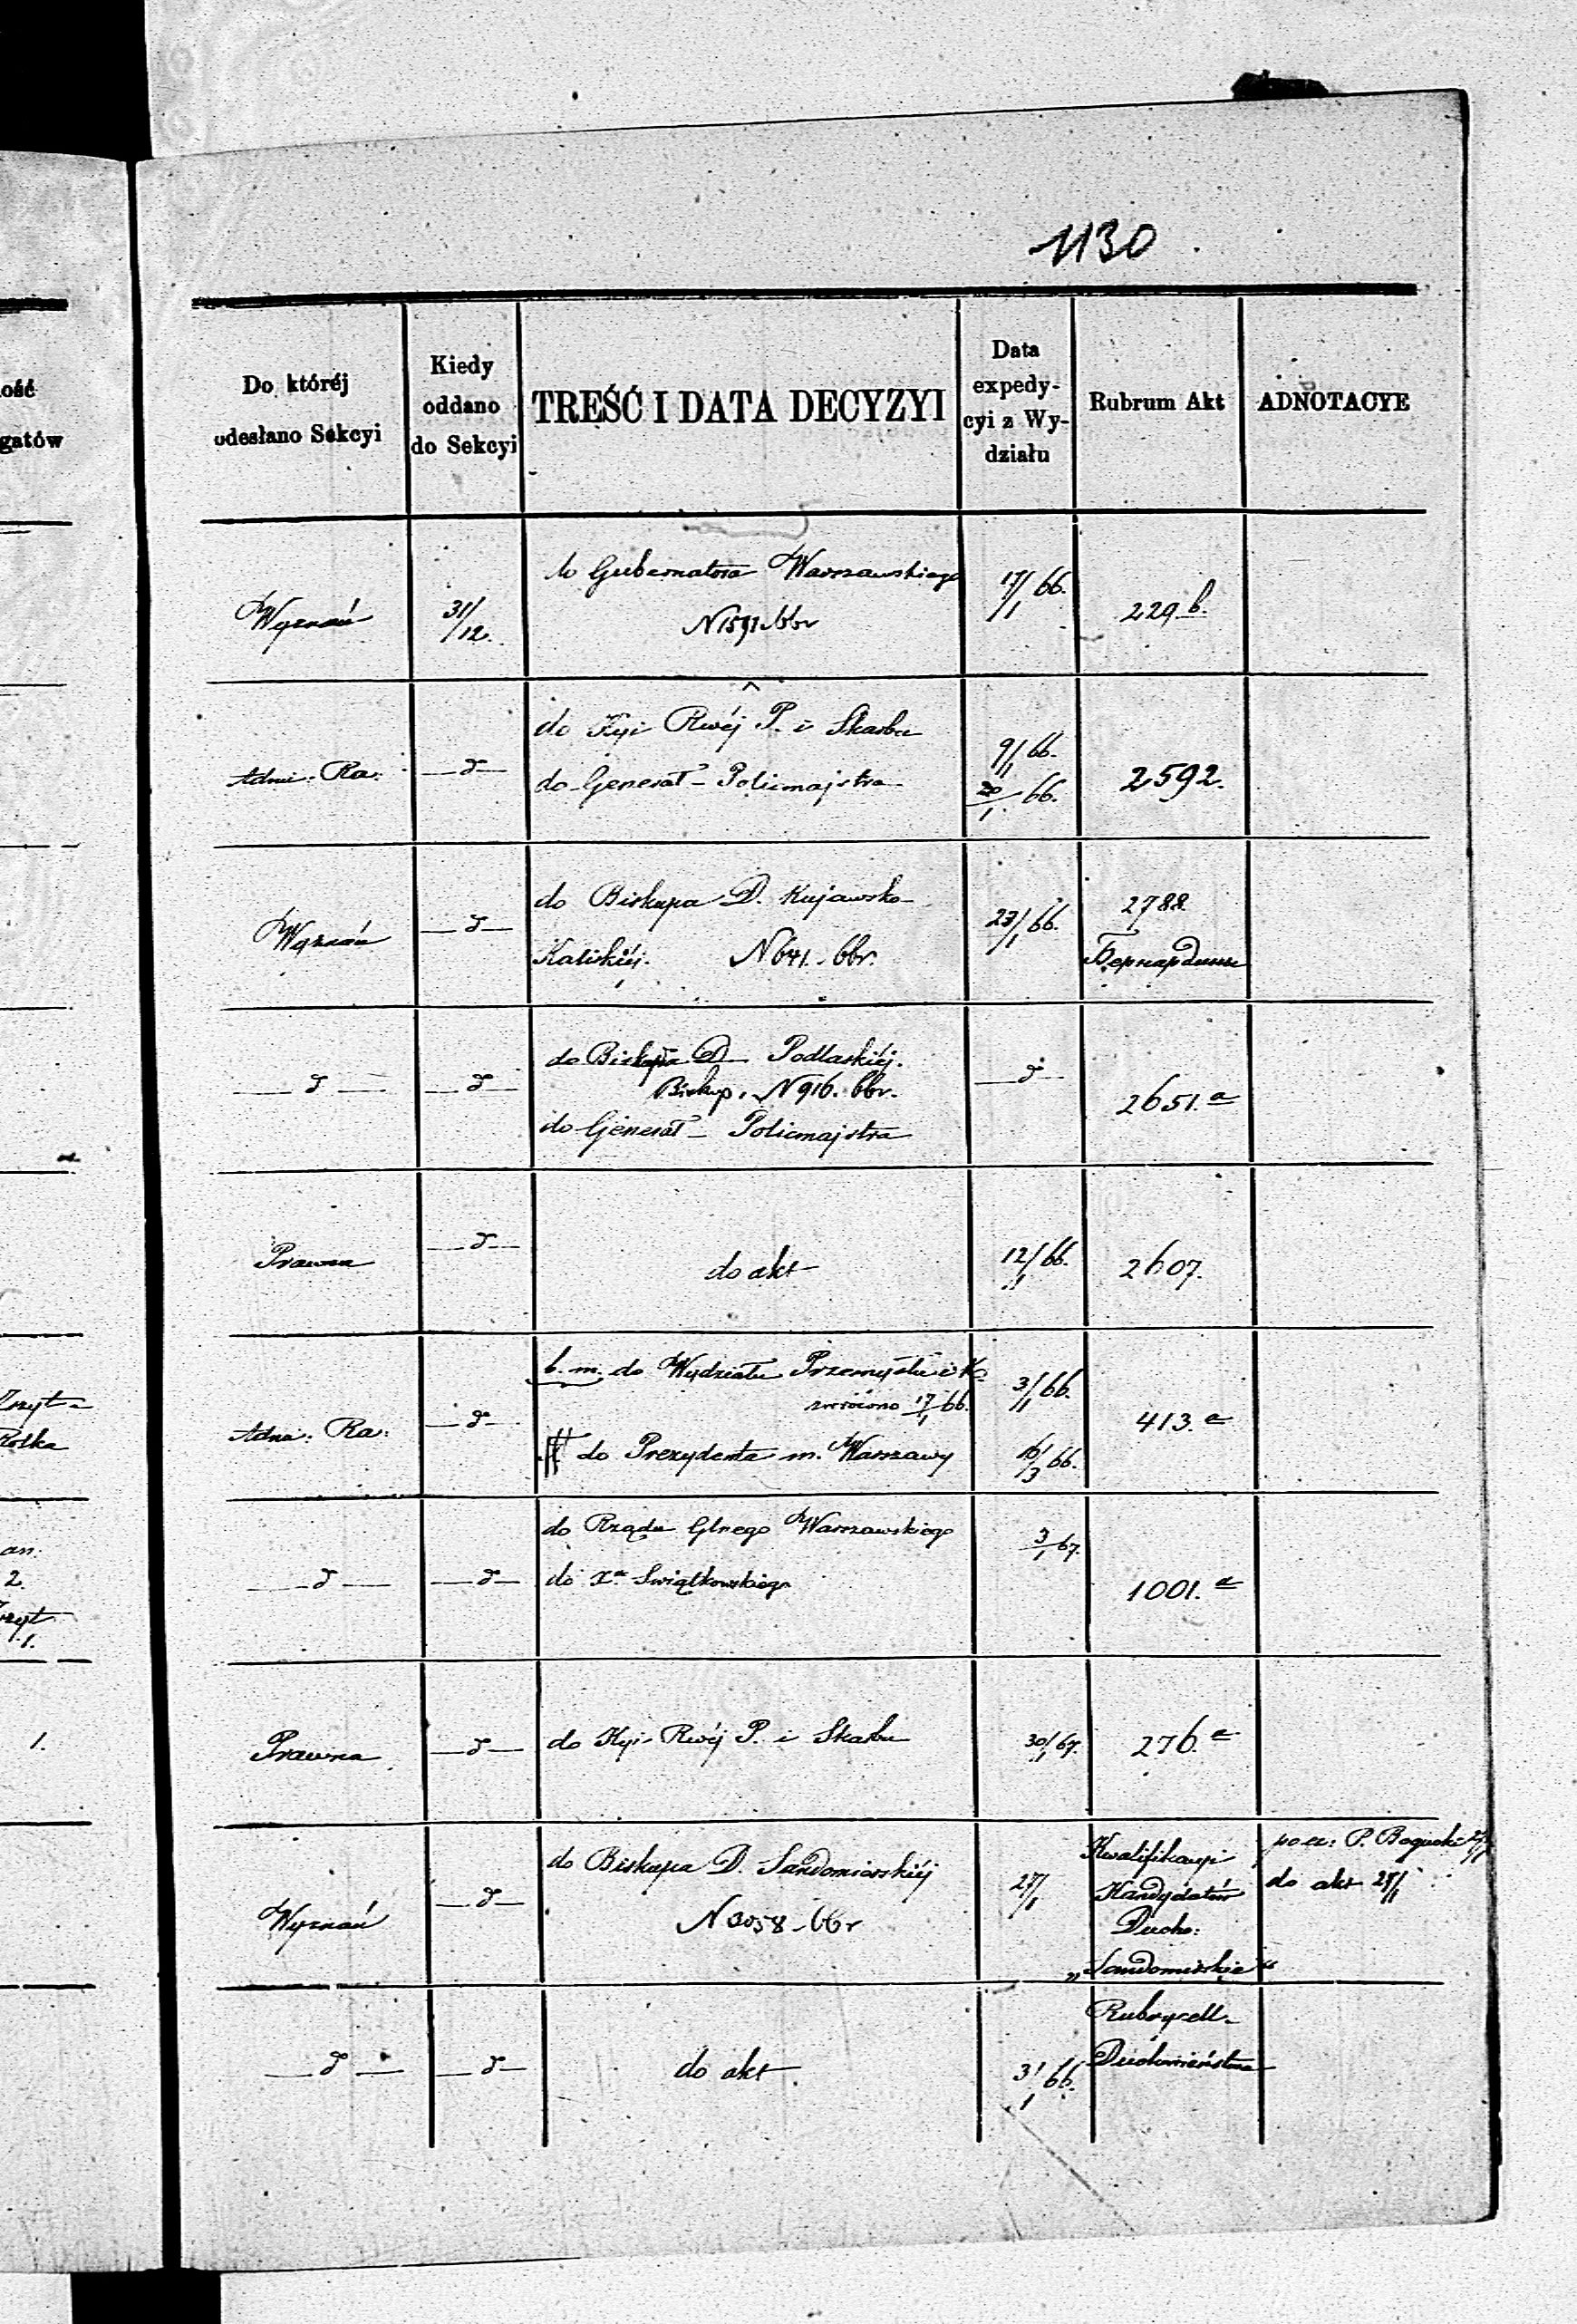 1130
ość
gatów
Do któréj
odesłano Sekcyi
Kiedy
oddano
do Sekcyi
TREŚĆ I DATA DECYZYI
Data
expedy-
cyi z Wy-
działu
Rubrum Akt
ADNOTACYE
Wyznań
31/12.
do Gubernatora Warszawskiego
N 1591 bbr
17/1 66.
229 b.
Admi: Ra:
— d —
do Kyi Rwéj P. i Skarbu
do Generał - Policmajstra
9/1 66.
20/1 66.
2592.
Wyznań
— d —
do Biskupa D. Kujawsko-
Kaliskiéj. N 641. bbr.
23/1 66.
2788.
Бернардины
— d —
— d —
do Biskupa D Podlaskiéj.
Biskup. N 916. bbr.
do Generał - Policmajstra
— d —
2651. a
Prawna
— d —
do akt
12/1 66.
2607.
Zeszyt
Admi: Ra:
— d —
b. m. do Wydziału Przemysłu i K.
zwrócono 17/1 66.
do Prezydenta m. Warszawy
3/1 66.
16/3 66.
413. a
2.
1.
— d —
— d —
do Rządu Glnego Warszawskiego
do Xa Swiątkowskiego
3/1 67.
1001. a
1.
Prawna
— d —
do Kyi Rwéj P. i Skarbu
30/1 67.
276. a
Wyznań
— d —
do Biskupa D. Sandomierskiéj
N 3058 - bbr
27/1
Kwalifikacyi
Kandydatów
Ducho:
„Sandomirskie“
P. Bogucki
do akt
— d —
— d —
do akt.
31/1 66.
Rubrycell.
Duchowieństwa